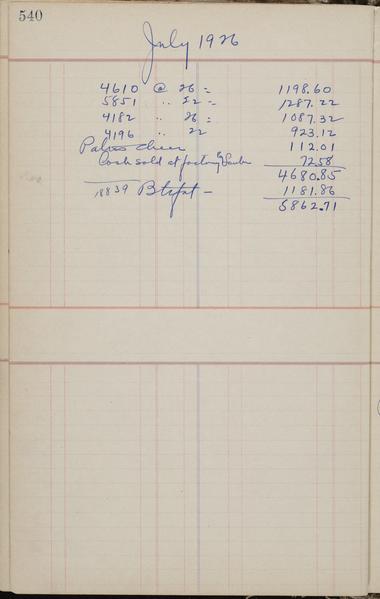 540
July 1926
4610 @ 26 = 1198.60
5851 " 22 = 1287.22
4182 " 26 = 1087.32
4196 " 22 923.12
112.01
sold at factory & 72.58
4680.85
18839 Btrfat - 1181.86
5862.71